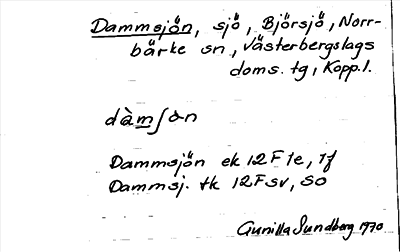 Dammsjön, sjö, Björsjö, Norr-
bärke sn, Västerbergslags
doms. tg, Kopp. l.
dàmʃɔn
Dammsjön ek 12F 1e, 1f
Dammsj. tk 12F sv, so
Gunilla Sundberg 1970